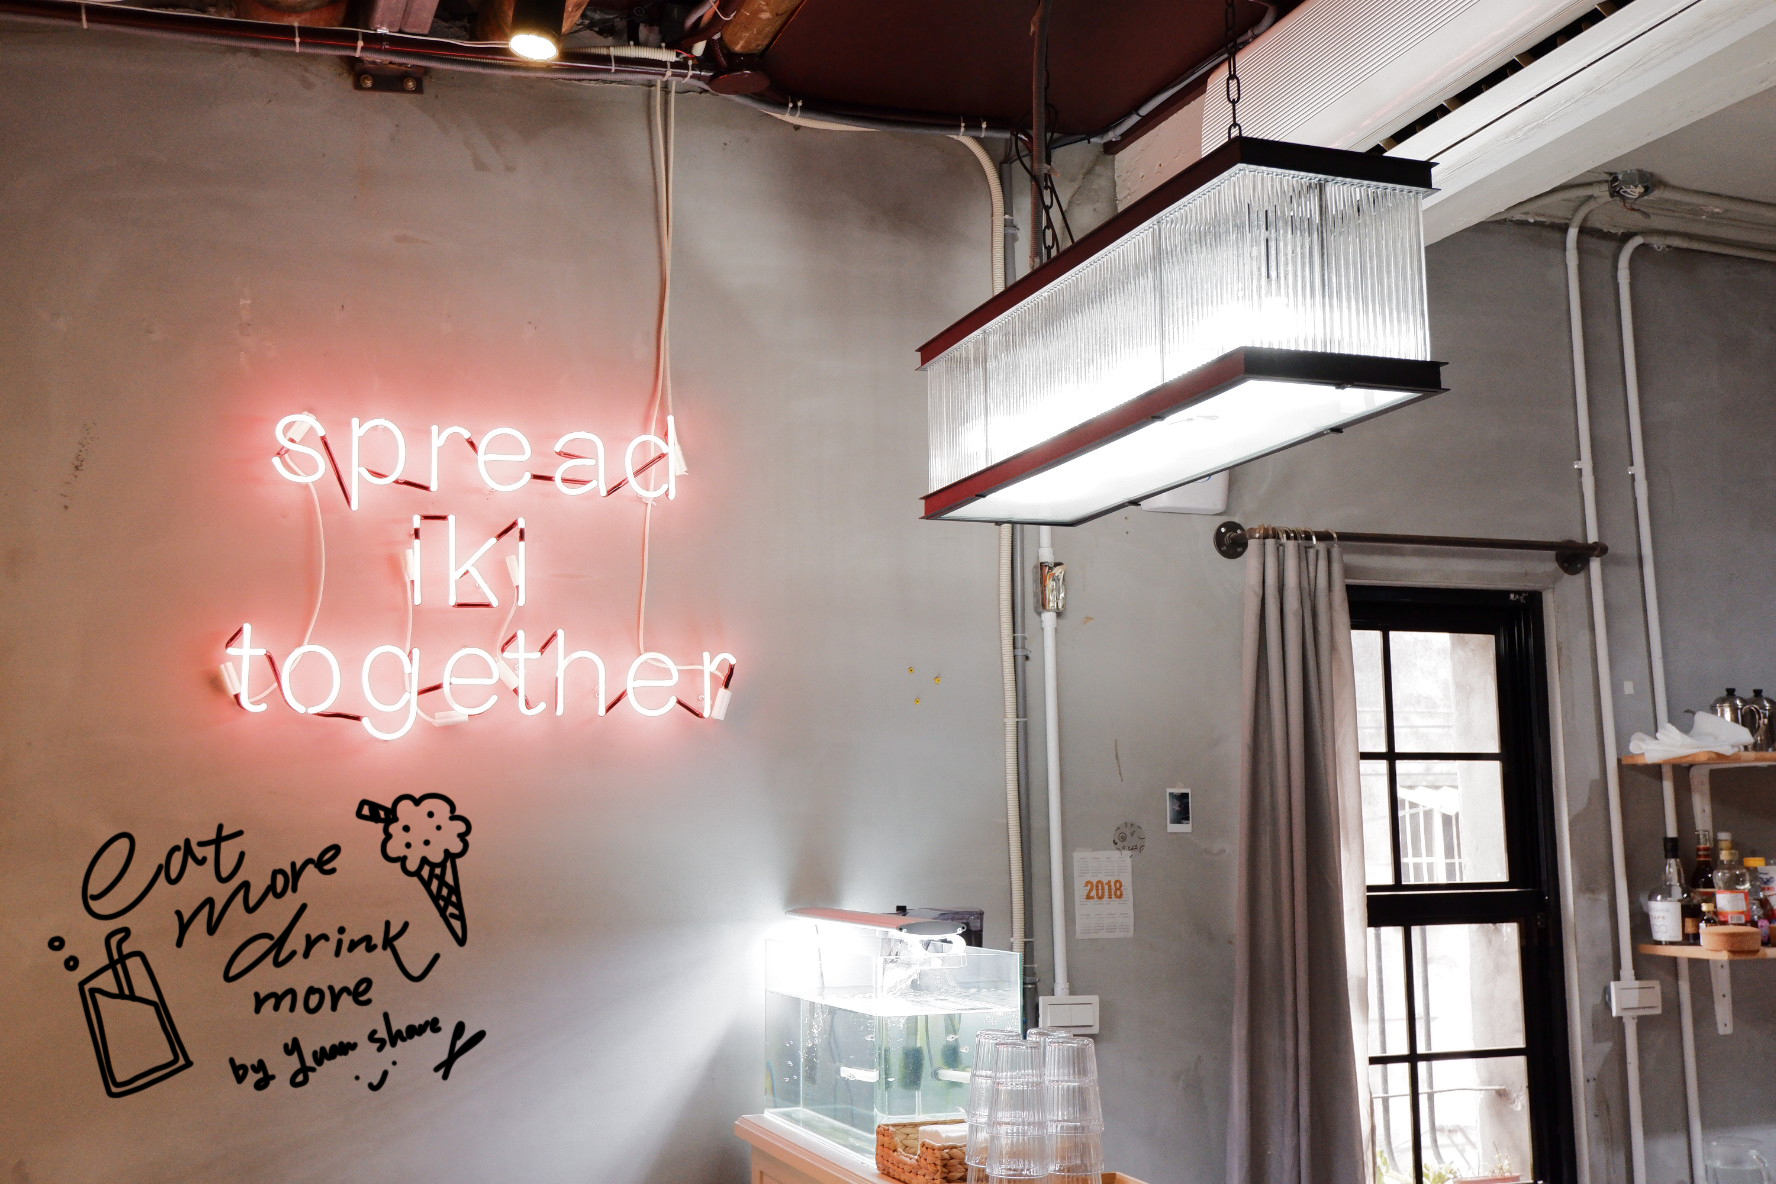 spread
iki
together
eat
more
drink
more
by yuan share
2018